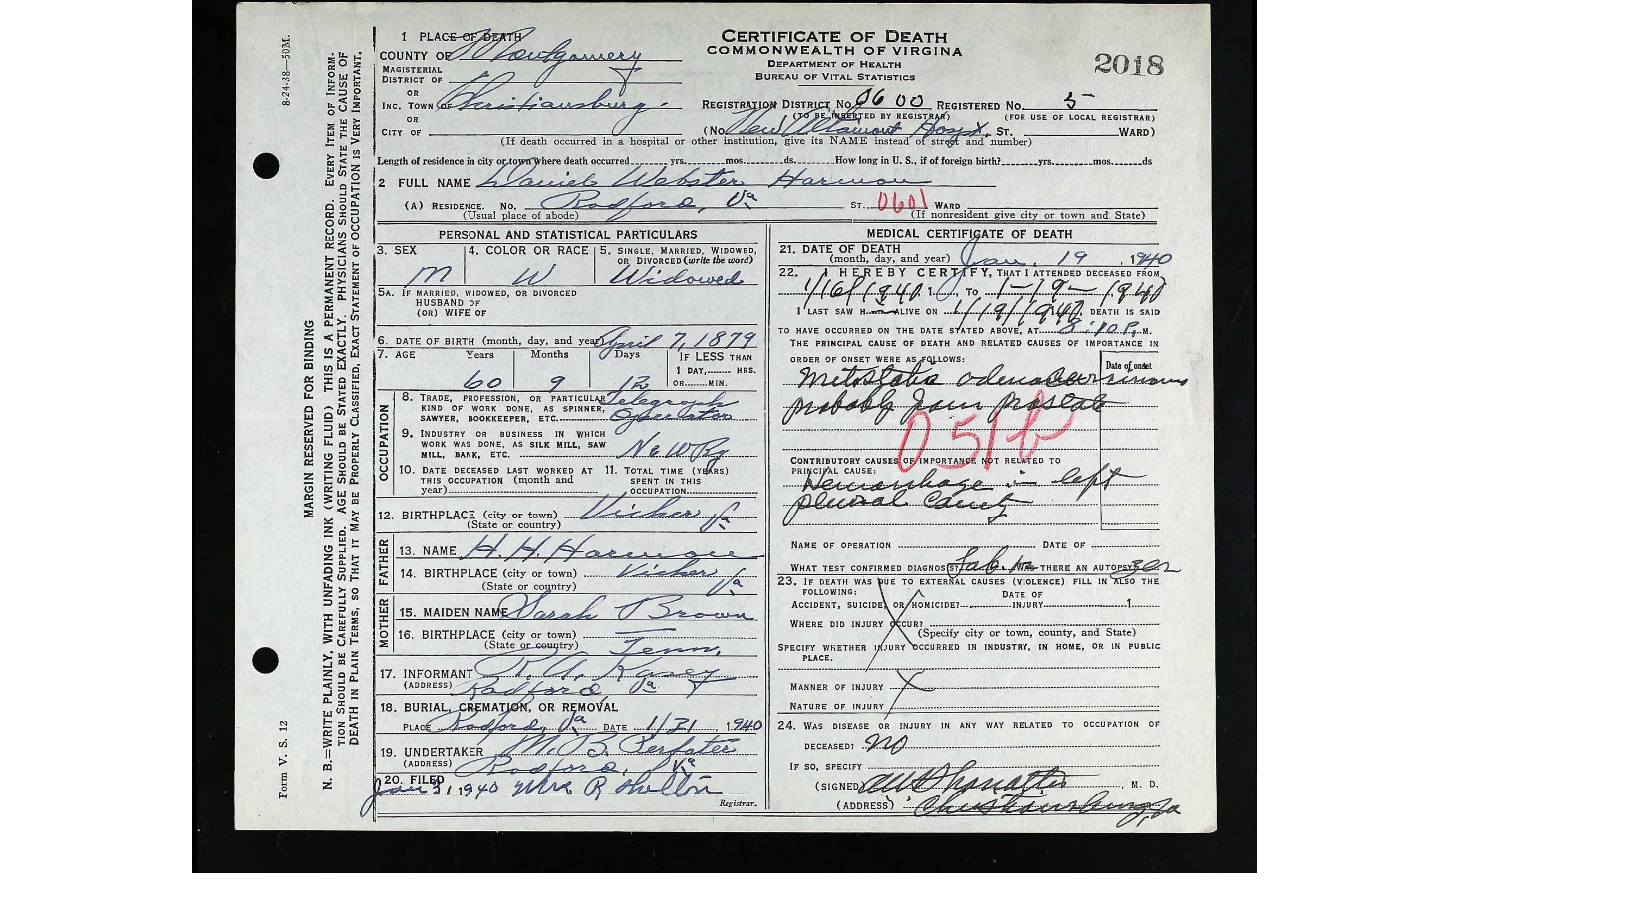 8-24-38—50M.
MARGIN RESERVED FOR BINDING
N. B.—WRITE PLAINLY, WITH UNFADING INK (WRITING FLUID) THIS IS A PERMANENT RECORD. EVERY ITEM OF INFORM-
TION SHOULD BE CAREFULLY SUPPLIED. AGE SHOULD BE STATED EXACTLY. PHYSICIANS SHOULD STATE THE CAUSE OF
DEATH IN PLAIN TERMS, SO THAT IT MAY BE PROPERLY CLASSIFIED. EXACT STATEMENT OF OCCUPATION IS VERY IMPORTANT.
Form V. S. 12
CERTIFICATE OF DEATH
COMMONWEALTH OF VIRGINA
DEPARTMENT OF HEALTH
BUREAU OF VITAL STATISTICS
2018
1 PLACE OF DEATH
COUNTY OF Montgomery
MAGISTERIAL
DISTRICT OF
OR
INC. TOWN OF Christiansburg
OR
CITY OF
REGISTRATION DISTRICT No. 0600 REGISTERED No. 5
(TO BE INSERTED BY REGISTRAR) (FOR USE OF LOCAL REGISTRAR)
(No. New Altamont Hosp. ST. WARD)
(If death occurred in a hospital or other institution, give its NAME instead of street and number)
Length of residence in city or town where death occurred yrs. mos. ds. How long in U. S., if of foreign birth? yrs. mos. ds
2 FULL NAME Daniel Webster Harmon
(A) RESIDENCE. No. Radford, Va ST. 0601 WARD
(Usual place of abode) (If nonresident give city or town and State)
PERSONAL AND STATISTICAL PARTICULARS
3. SEX 4. COLOR OR RACE 5. SINGLE, MARRIED, WIDOWED,
OR DIVORCED (write the word)
M W Widowed
5A. IF MARRIED, WIDOWED, OR DIVORCED
HUSBAND OF
(OR) WIFE OF
6. DATE OF BIRTH (month, day, and year) April 7, 1879
7. AGE Years Months Days IF LESS THAN
1 DAY, HRS.
60 9 12 OR MIN.
OCCUPATION
8. TRADE, PROFESSION, OR PARTICULAR Telegraph
KIND OF WORK DONE, AS SPINNER,
SAWYER, BOOKKEEPER, ETC. Operator
9. INDUSTRY OR BUSINESS IN WHICH
WORK WAS DONE, AS SILK MILL, SAW
MILL, BANK, ETC. N & W Ry
10. DATE DECEASED LAST WORKED AT 11. TOTAL TIME (YEARS)
THIS OCCUPATION (month and SPENT IN THIS
year) OCCUPATION
12. BIRTHPLACE (city or town) Vicker Va
(State or country)
FATHER
13. NAME H. H. Harmon
14. BIRTHPLACE (city or town) Vicker Va
(State or country)
MOTHER
15. MAIDEN NAME Sarah Brown
16. BIRTHPLACE (city or town)
(State or country) Tenn.
17. INFORMANT R. A. Kasey
(ADDRESS) Radford, Va
18. BURIAL, CREMATION, OR REMOVAL
PLACE Radford, Va DATE 1/21, 1940
19. UNDERTAKER M. B.
(ADDRESS) Radford, Va
20. FILED
Jan 31 1940 Mrs R Shelton
Registrar.
MEDICAL CERTIFICATE OF DEATH
21. DATE OF DEATH
(month, day, and year) Jan. 19, 1940
22. I HEREBY CERTIFY, THAT I ATTENDED DECEASED FROM
1/16/1940, TO 1-19-1940
I LAST SAW H ALIVE ON 1/19/1940, DEATH IS SAID
TO HAVE OCCURRED ON THE DATE STATED ABOVE, AT 8:10 P. M.
THE PRINCIPAL CAUSE OF DEATH AND RELATED CAUSES OF IMPORTANCE IN
ORDER OF ONSET WERE AS FOLLOWS: Date of onset
Metastatic adenocarcinoma
probably from prostate
051b
CONTRIBUTORY CAUSES OF IMPORTANCE NOT RELATED TO
PRINCIPAL CAUSE:
Hemorrhage in left
pleural cavity
NAME OF OPERATION DATE OF
WHAT TEST CONFIRMED DIAGNOSIS? Lab. WAS THERE AN AUTOPSY?
23. IF DEATH WAS DUE TO EXTERNAL CAUSES (VIOLENCE) FILL IN ALSO THE
FOLLOWING: DATE OF
ACCIDENT, SUICIDE, OR HOMICIDE? INJURY 1
WHERE DID INJURY OCCUR?
(Specify city or town, county, and State)
SPECIFY WHETHER INJURY OCCURRED IN INDUSTRY, IN HOME, OR IN PUBLIC
PLACE.
MANNER OF INJURY
NATURE OF INJURY
24. WAS DISEASE OR INJURY IN ANY WAY RELATED TO OCCUPATION OF
DECEASED? no
IF SO, SPECIFY
(SIGNED) M. D.
(ADDRESS) Christiansburg, Va